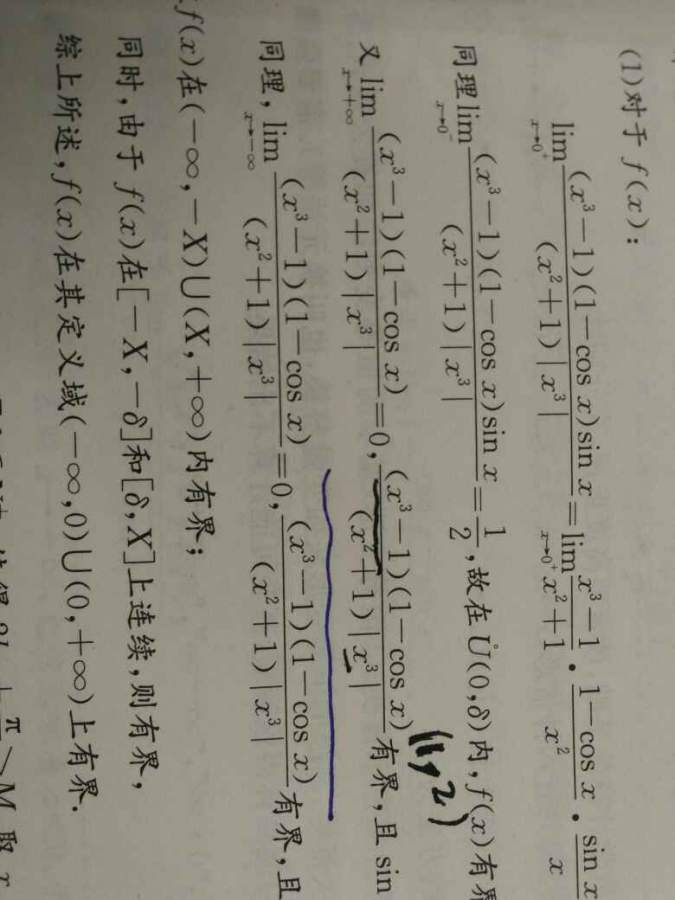 (1)对于 f(x):
lim x→0⁺ (x³−1)(1−cos x)sin x / (x²+1)|x³| = lim x→0⁺ x³−1 / x²+1 · 1−cos x / x² · sin x / x
同理 lim x→0⁻ (x³−1)(1−cos x)sin x / (x²+1)|x³| = 1/2, 故在 Ů(0,δ)内, f(x)有界
(1,2)
又 lim x→+∞ (x³−1)(1−cos x) / (x²+1)|x³| = 0, (x³−1)(1−cos x) / (x²+1)|x³| 有界, 且 sin
同理, lim x→−∞ (x³−1)(1−cos x) / (x²+1)|x³| = 0, (x³−1)(1−cos x) / (x²+1)|x³| 有界, 且
f(x)在(−∞,−X)∪(X,+∞)内有界;
同时,由于 f(x)在[−X,−δ]和[δ,X]上连续,则有界,
综上所述,f(x)在其定义域(−∞,0)∪(0,+∞)上有界.
π
>M 取 x